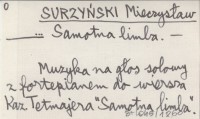 0
SURZYŃSKI Mieczysław
_... Samotna limba. —
Muzyka na głos solowy
z fortepianem do wiersza
Kaz Tetmajera "Samotna limba".